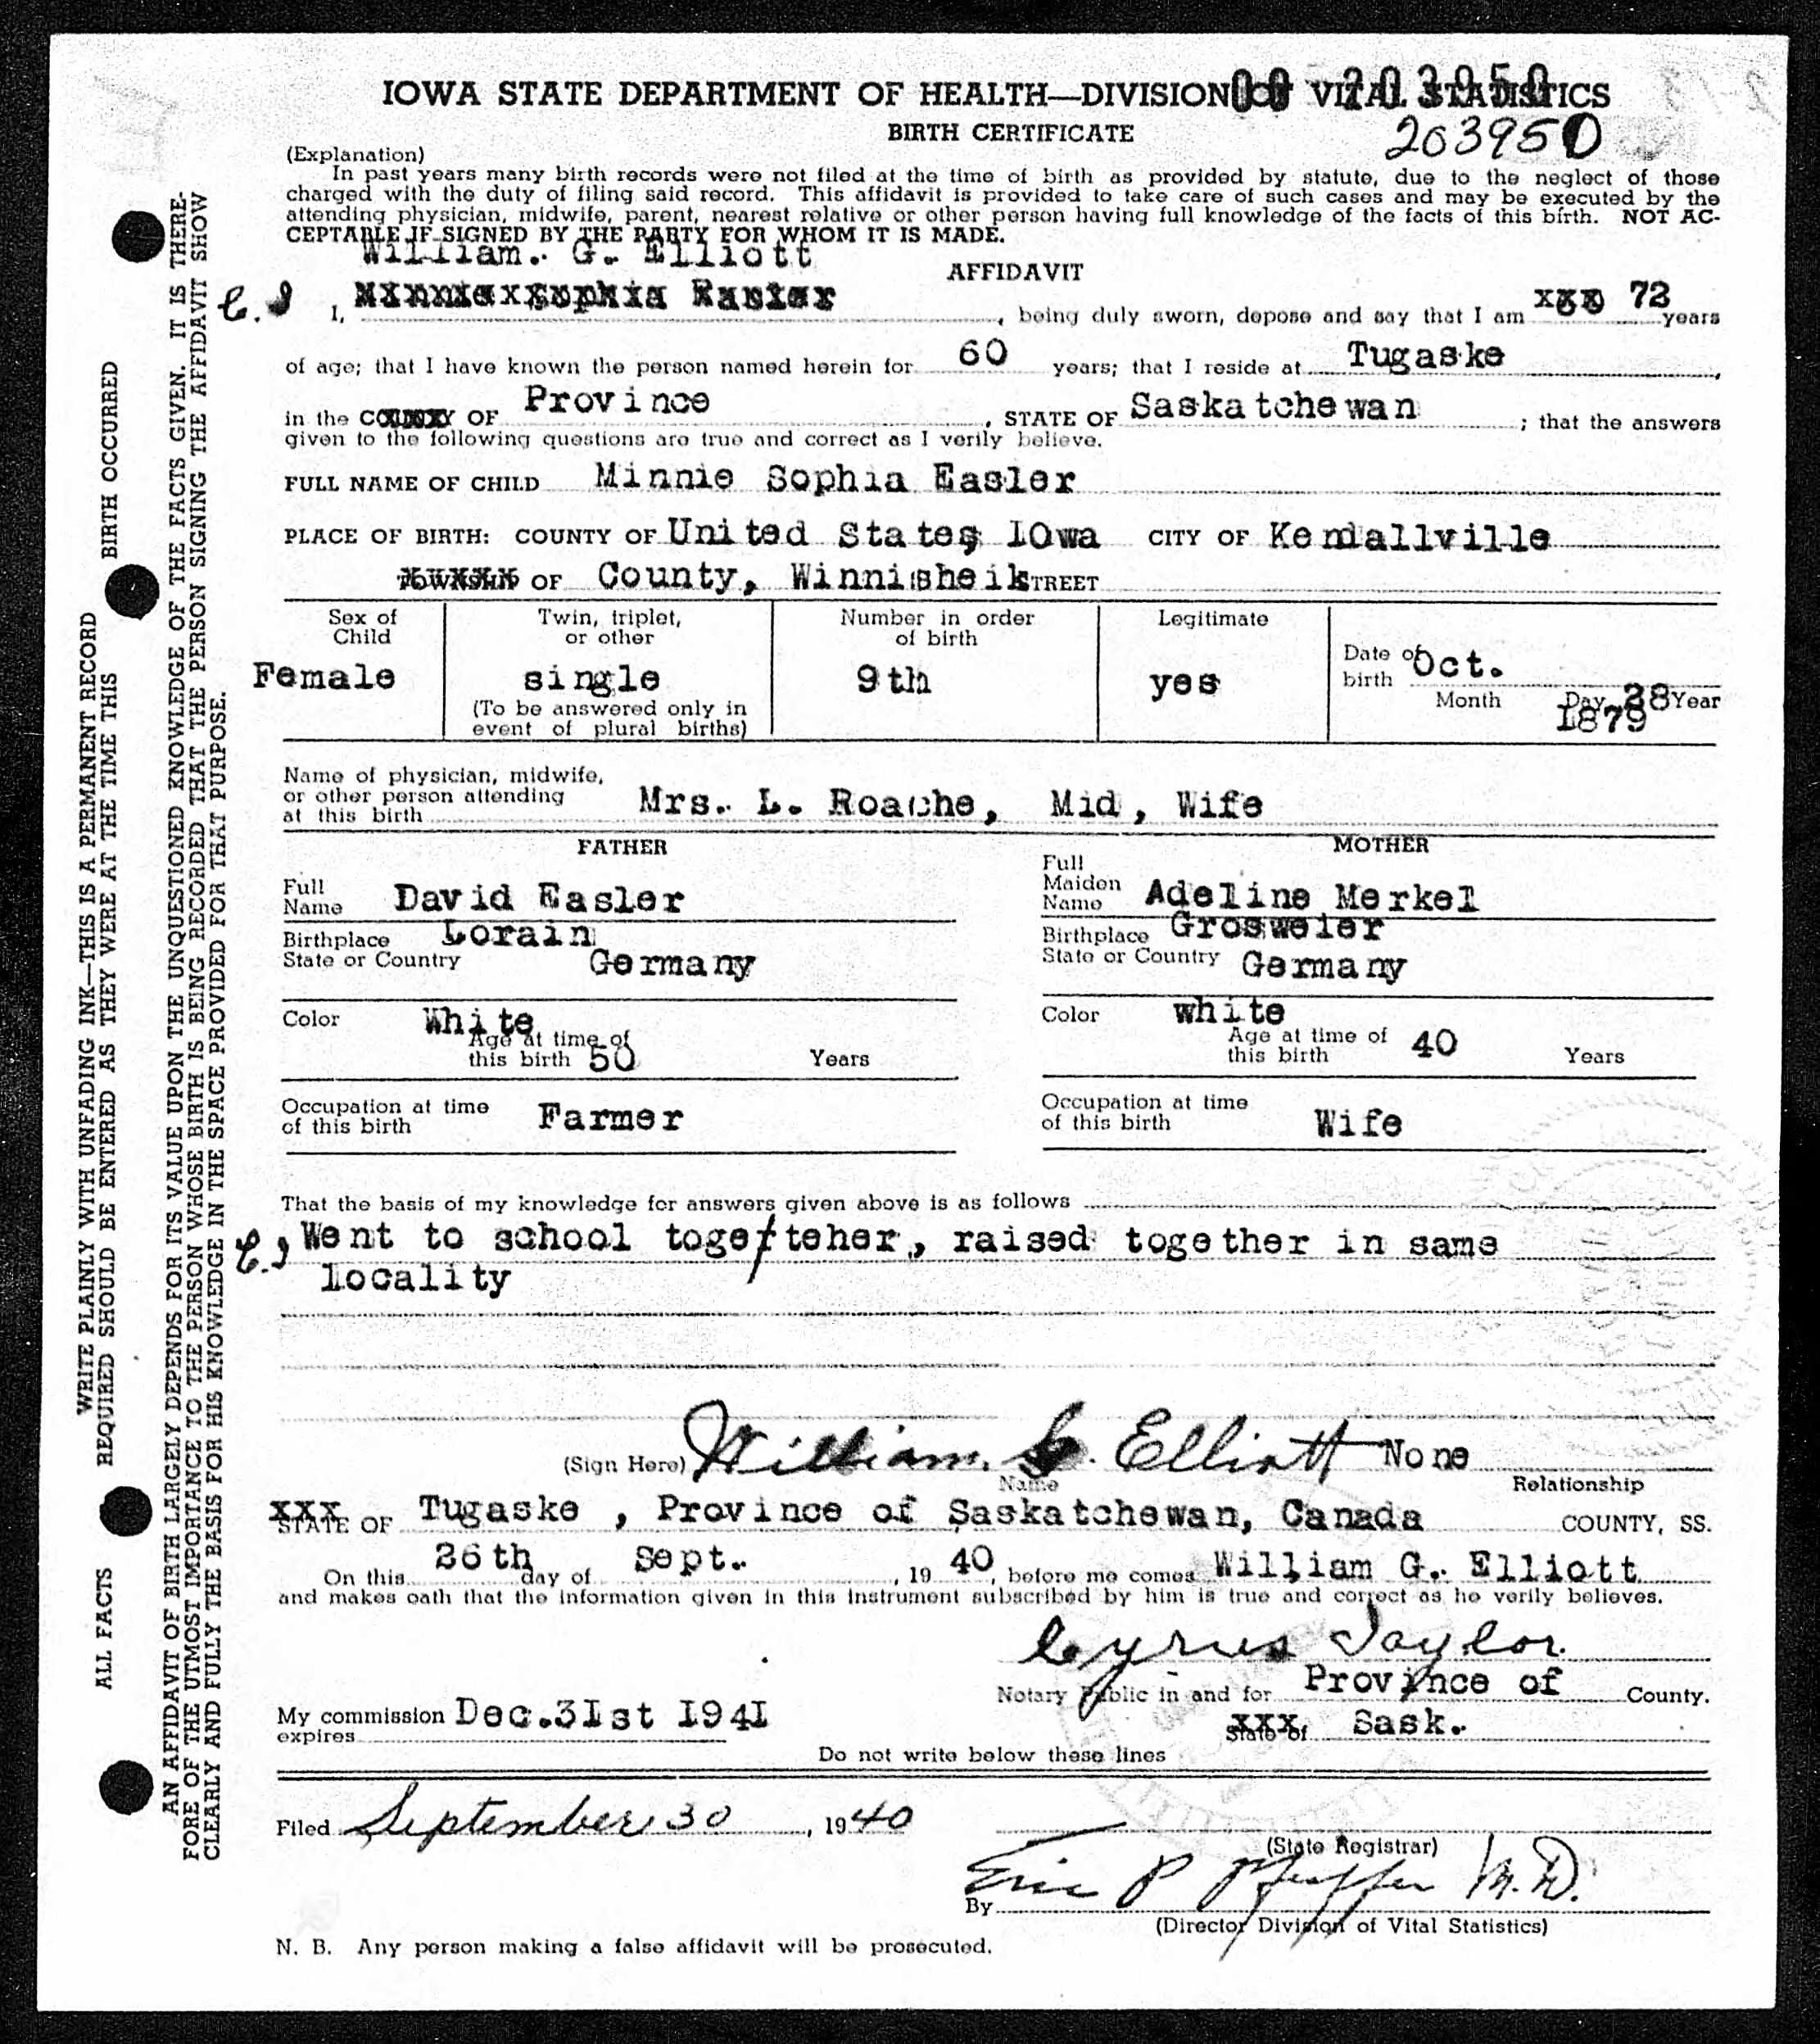 IOWA STATE DEPARTMENT OF HEALTH—DIVISION OF VITAL STATISTICS
00 203950
BIRTH CERTIFICATE
203950
(Explanation)
In past years many birth records were not filed at the time of birth as provided by statute, due to the neglect of those
charged with the duty of filing said record. This affidavit is provided to take care of such cases and may be executed by the
attending physician, midwife, parent, nearest relative or other person having full knowledge of the facts of this birth. NOT AC-
CEPTABLE IF SIGNED BY THE PARTY FOR WHOM IT IS MADE.
William. G. Elliott
AFFIDAVIT
I, Minnie Sophia Easler, being duly sworn, depose and say that I am xxx 72 years
of age; that I have known the person named herein for 60 years; that I reside at Tugaske,
in the COUNTY OF Province, STATE OF Saskatchewan; that the answers
given to the following questions are true and correct as I verily believe.
FULL NAME OF CHILD Minnie Sophia Easler
PLACE OF BIRTH: COUNTY OF United States IOwa CITY OF Kendallville
TOWNSHIP OF County, Winnisheik STREET
Sex of Child
Female
Twin, triplet, or other
single
(To be answered only in event of plural births)
Number in order of birth
9th
Legitimate
yes
Date of birth Oct. 28 1879
Month Day Year
Name of physician, midwife,
or other person attending
at this birth Mrs. L. Roache, Mid, Wife
FATHER
Full Name David Easler
Birthplace Lorain
State or Country Germany
Color White
Age at time of this birth 50 Years
Occupation at time of this birth Farmer
MOTHER
Full Maiden Name Adeline Merkel
Birthplace Grosweier
State or Country Germany
Color white
Age at time of this birth 40 Years
Occupation at time of this birth Wife
That the basis of my knowledge for answers given above is as follows
Went to school togetteher, raised together in same
locality
(Sign Here) William. G. Elliott None
Name Relationship
xxx
STATE OF Tugaske, Province of Saskatchewan, Canada COUNTY, SS.
On this 26th day of Sept., 1940, before me comes William G. Elliott
and makes oath that the information given in this instrument subscribed by him is true and correct as he verily believes.
Cyrus Taylor.
Notary Public in and for Province of County.
My commission expires Dec.31st 1941
State of xxx. Sask.
Do not write below these lines
Filed September 30, 1940
(State Registrar)
By Eric P Pfeiffer M.D.
(Director Division of Vital Statistics)
N. B. Any person making a false affidavit will be prosecuted.
WRITE PLAINLY WITH UNFADING INK—THIS IS A PERMANENT RECORD
ALL FACTS REQUIRED SHOULD BE ENTERED AS THEY WERE AT THE TIME THIS BIRTH OCCURRED
AN AFFIDAVIT OF BIRTH LARGELY DEPENDS FOR ITS VALUE UPON THE UNQUESTIONED KNOWLEDGE OF THE FACTS GIVEN. IT IS THERE-
FORE OF THE UTMOST IMPORTANCE TO THE PERSON WHOSE BIRTH IS BEING RECORDED THAT THE PERSON SIGNING THE AFFIDAVIT SHOW
CLEARLY AND FULLY THE BASIS FOR HIS KNOWLEDGE IN THE SPACE PROVIDED FOR THAT PURPOSE.